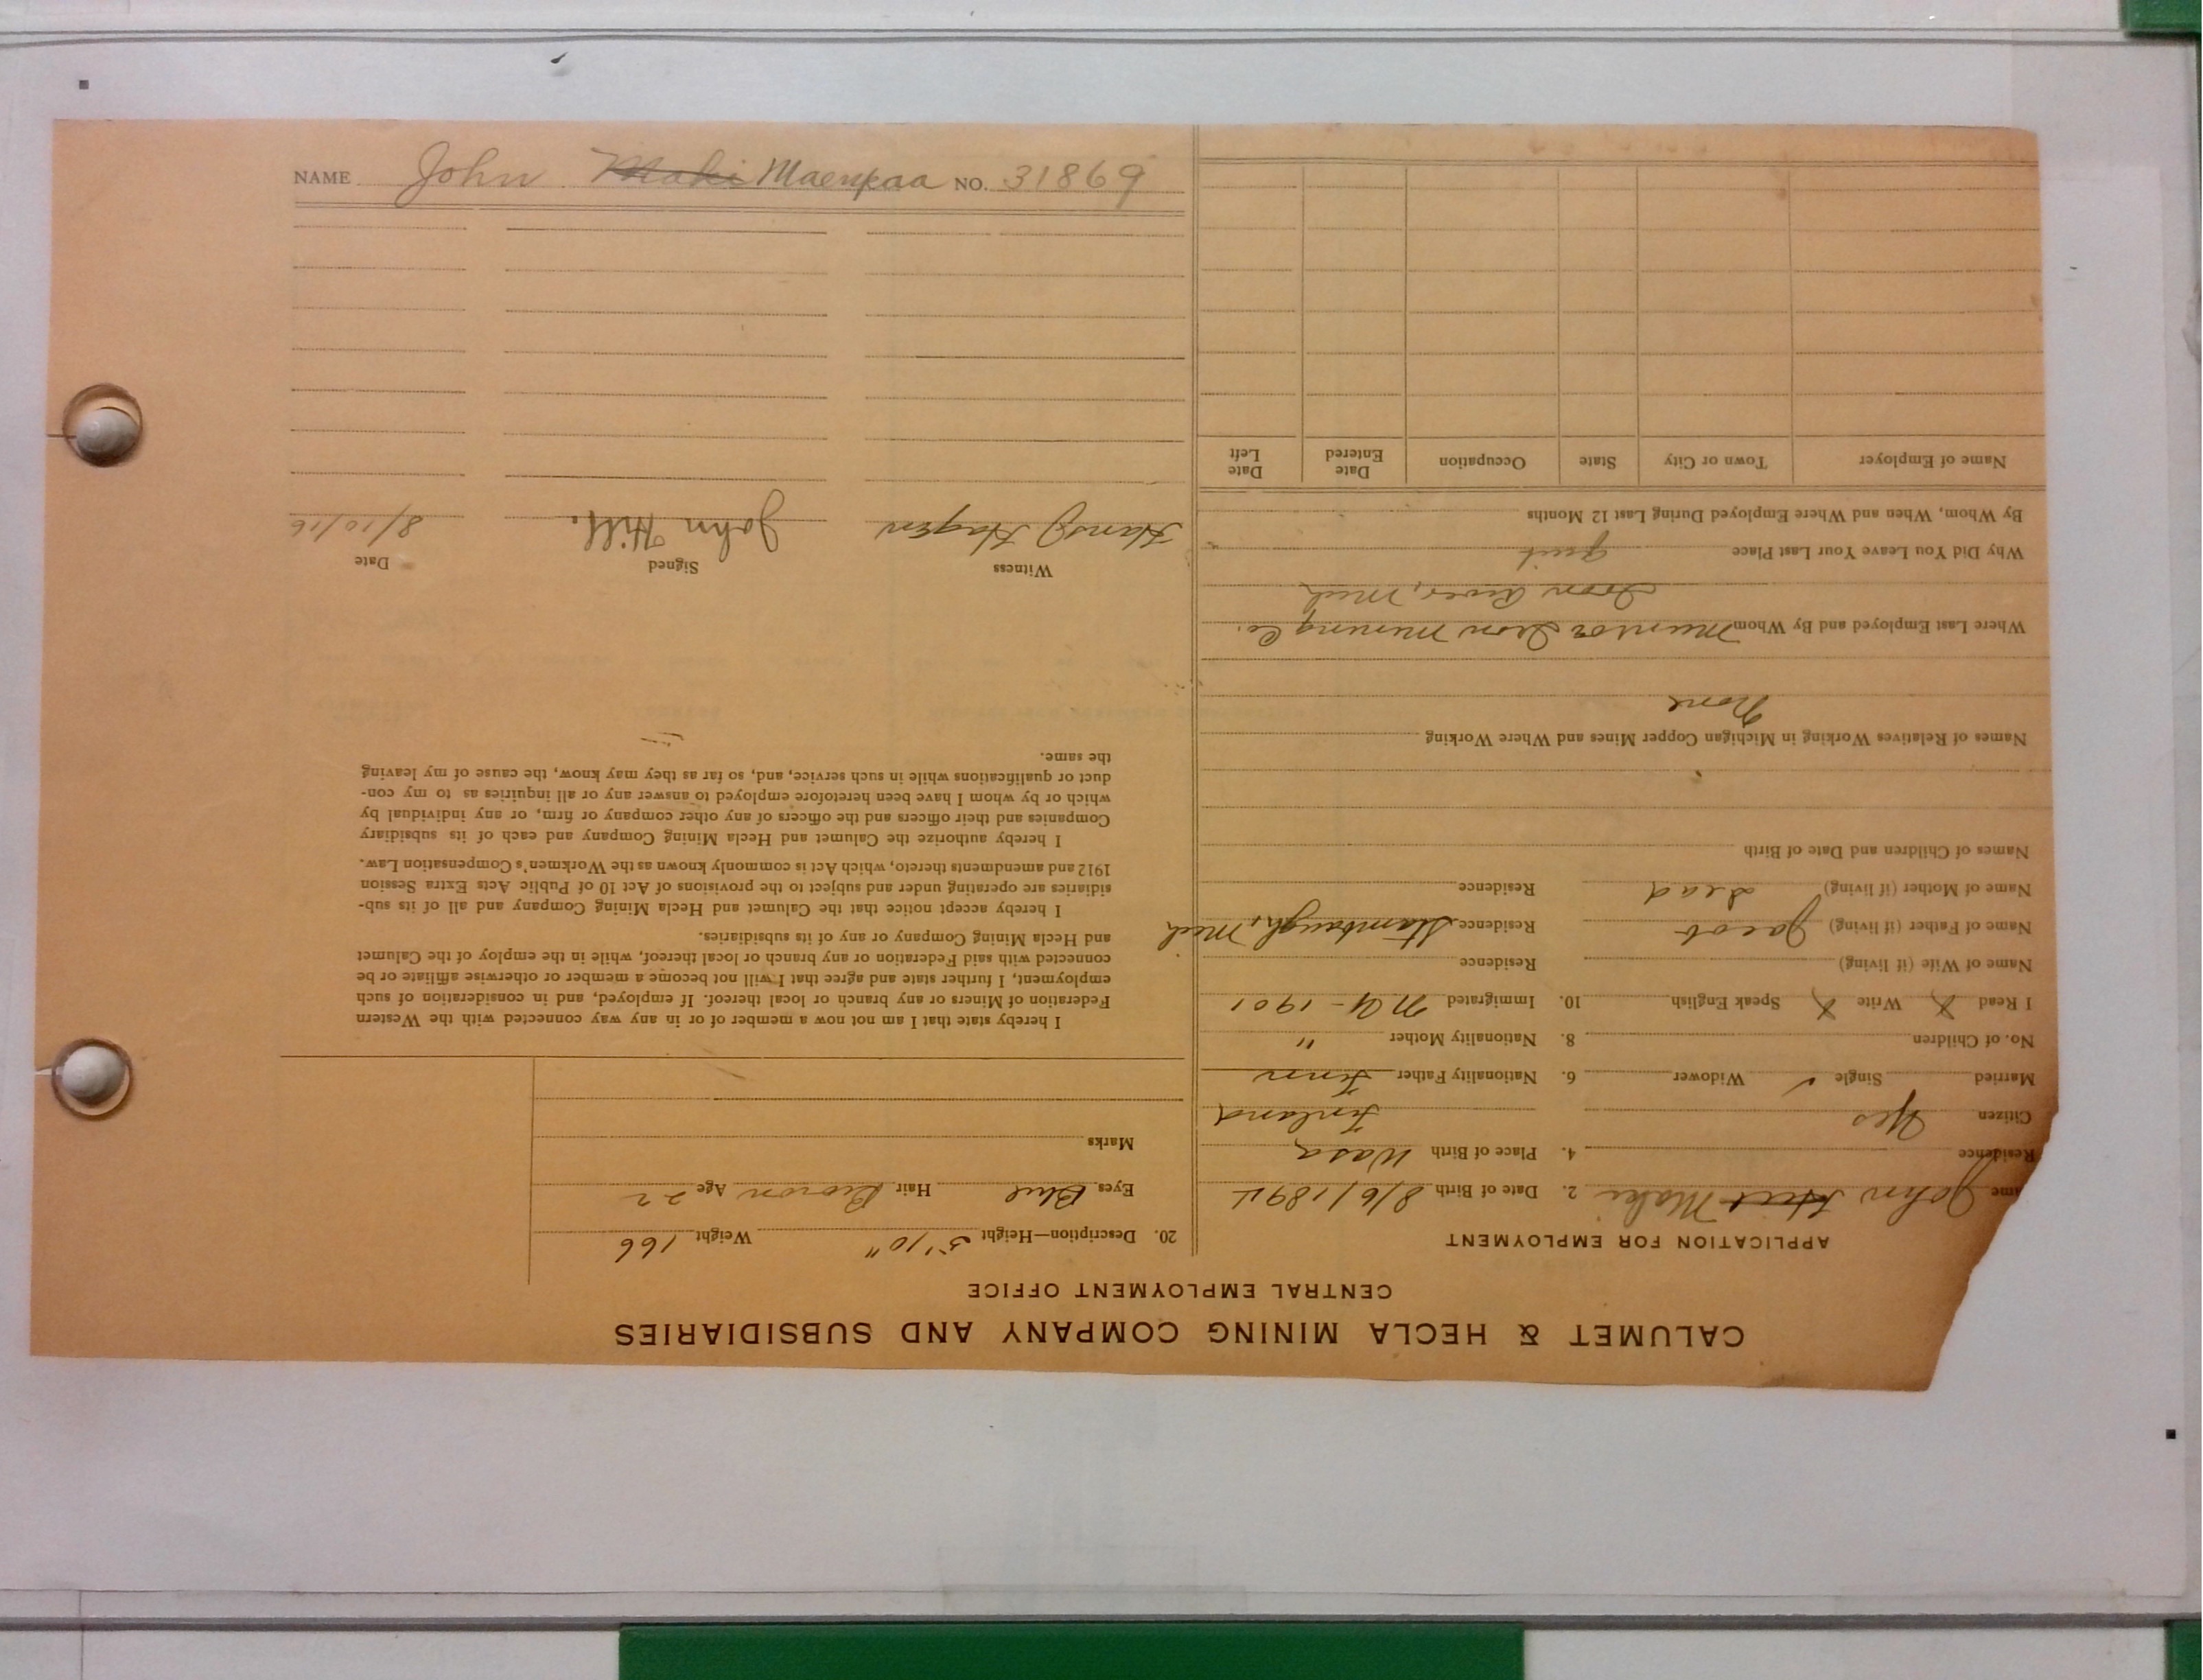 CALUMET & HECLA MINING COMPANY AND SUBSIDIARIES
CENTRAL EMPLOYMENT OFFICE
APPLICATION FOR EMPLOYMENT
ame John Maki 2. Date of Birth 8/6/1894
Residence 4. Place of Birth Wasa
Citizen Yes Finland
Married Single ✓ Widower 6. Nationality Father Finn
No. of Children 8. Nationality Mother "
I Read X Write X Speak English 10. Immigrated NY-1901
Name of Wife (if living) Residence
Name of Father (if living) Jacob Residence Stambaugh, Mich
Name of Mother (if living) dead Residence
Names of Children and Date of Birth
Names of Relatives Working in Michigan Copper Mines and Where Working
None
Where Last Employed and By Whom Iron Mining Co.
Iron River, Mich
Why Did You Leave Your Last Place quit
By Whom, When and Where Employed During Last 12 Months
Name of Employer Town or City State Occupation Date Entered Date Left
20. Description—Height 5'10" Weight 166
Eyes Blue Hair Brown Age 22
Marks
I hereby state that I am not now a member of or in any way connected with the Western
Federation of Miners or any branch or local thereof. If employed, and in consideration of such
employment, I further state and agree that I will not become a member or otherwise affiliate or be
connected with said Federation or any branch or local thereof, while in the employ of the Calumet
and Hecla Mining Company or any of its subsidiaries.
I hereby accept notice that the Calumet and Hecla Mining Company and all of its sub-
sidiaries are operating under and subject to the provisions of Act 10 of Public Acts Extra Session
1912 and amendments thereto, which Act is commonly known as the Workmen's Compensation Law.
I hereby authorize the Calumet and Hecla Mining Company and each of its subsidiary
Companies and their officers and the officers of any other company or firm, or any individual by
which or by whom I have been heretofore employed to answer any or all inquiries as to my con-
duct or qualifications while in such service, and, so far as they may know, the cause of my leaving
the same.
Witness Signed Date
Hans J Hagen John Hill. 8/10/16
NAME John Maki Maenpaa NO. 31869